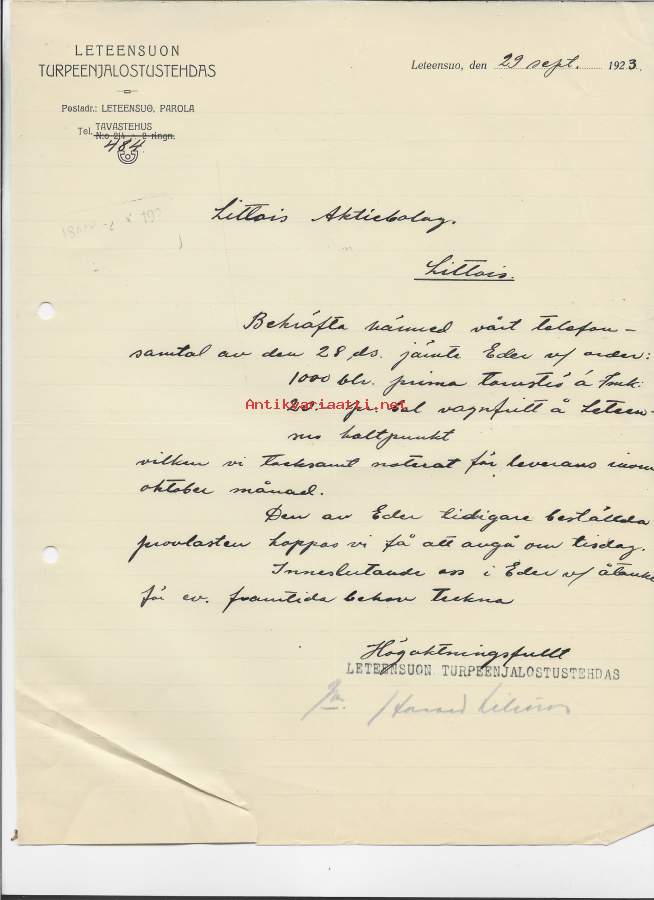 LETEENSUON
TURPEENJALOSTUSTEHDAS
Leteensuo, den 29 sept. 1923.
Postadr.: LETEENSUO, PAROLA
Tel. TAVASTEHUS
N:o 214 - 2 ringn.
484
Littois Aktiebolag.
Littois.
Bekräfta härmed vårt telefon-
samtal av den 28 ds. jämte Eder v/ order:
1000 blr. prima torvströ á Fmk:
Antikvariaatti.net
pr. bal vagnfritt å Leteen-
suo haltpunkt
vilken vi tacksamt noterat för leverans inom
oktober månad.
Den av Eder tidigare beställda
provlasten hoppas vi få att avgå om tisdag.
Inneslutande oss i Eder v/ åtanke
för ev. framtida behov teckna
Högaktningsfullt
LETEENSUON TURPEENJALOSTUSTEHDAS